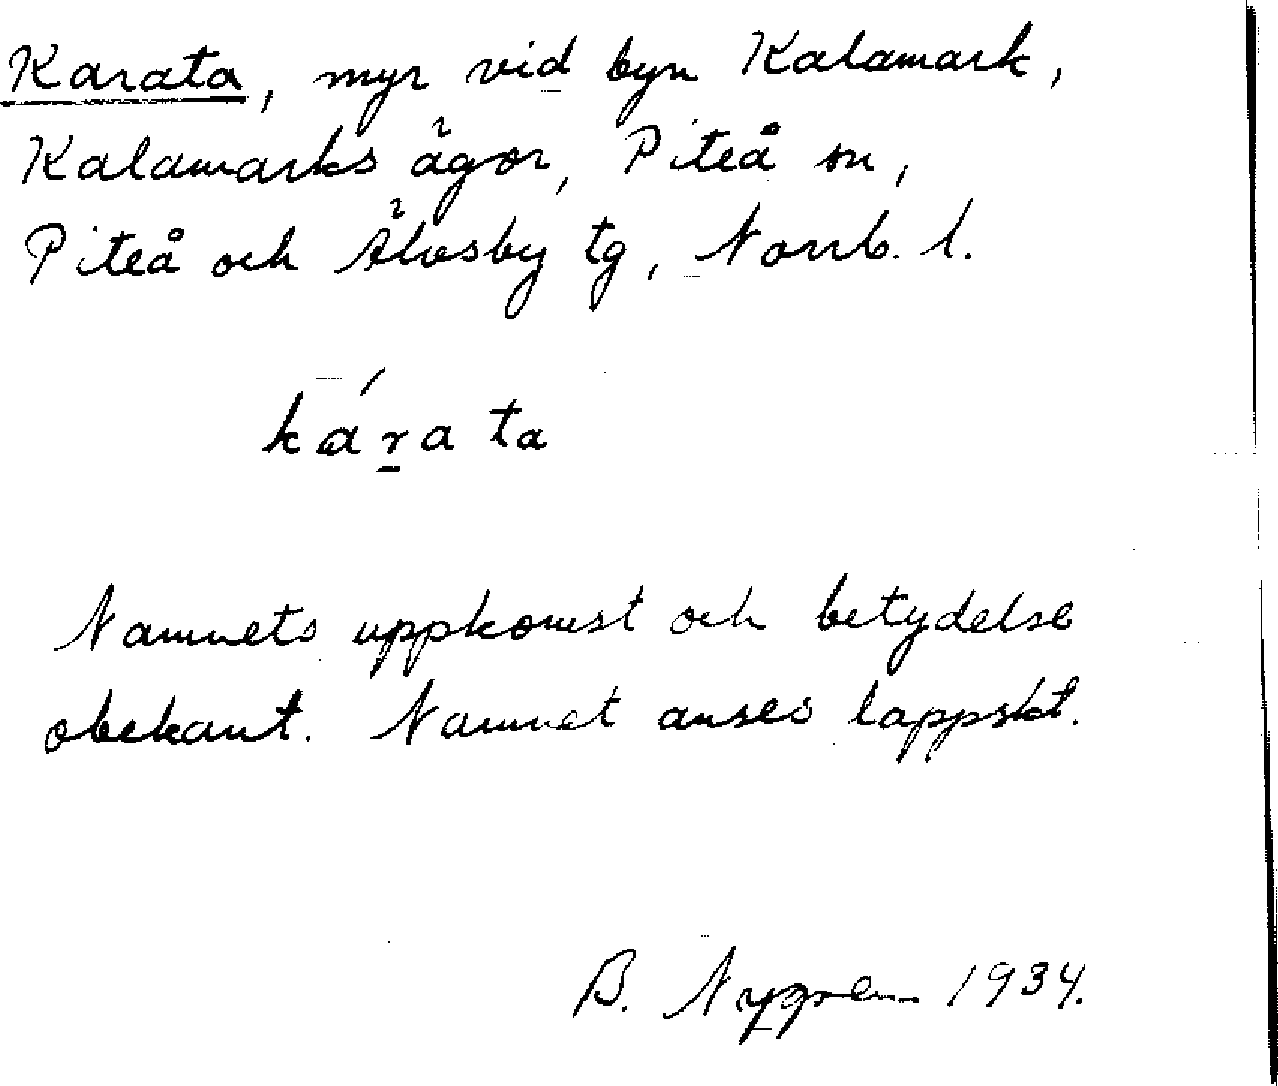 Karata, myr vid byn Kalamark,
Kalamarks ägor, Piteå sn,
Piteå och Älvsby tg, Norrb. l.
ká̱rata
Namnets uppkomst och betydelse
obekant. Namnet anses lappskt.
B. Nygren 1934.